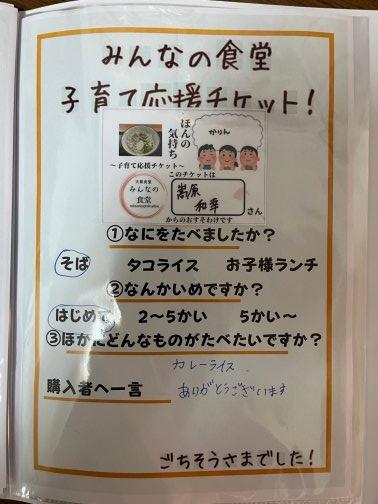 みんなの食堂
子育て応援チケット！
ほんの
気持ち
かりん
～子育て応援チケット～
このチケットは
みんなの
食堂
嵩原
和幸
さん
からのおすそわけです
①なにをたべましたか？
そば タコライス お子様ランチ
②なんかいめですか？
はじめて 2～5かい 5かい～
③ほかにどんなものがたべたいですか？
カレーライス
購入者へ一言 ありがとうございます
ごちそうさまでした！